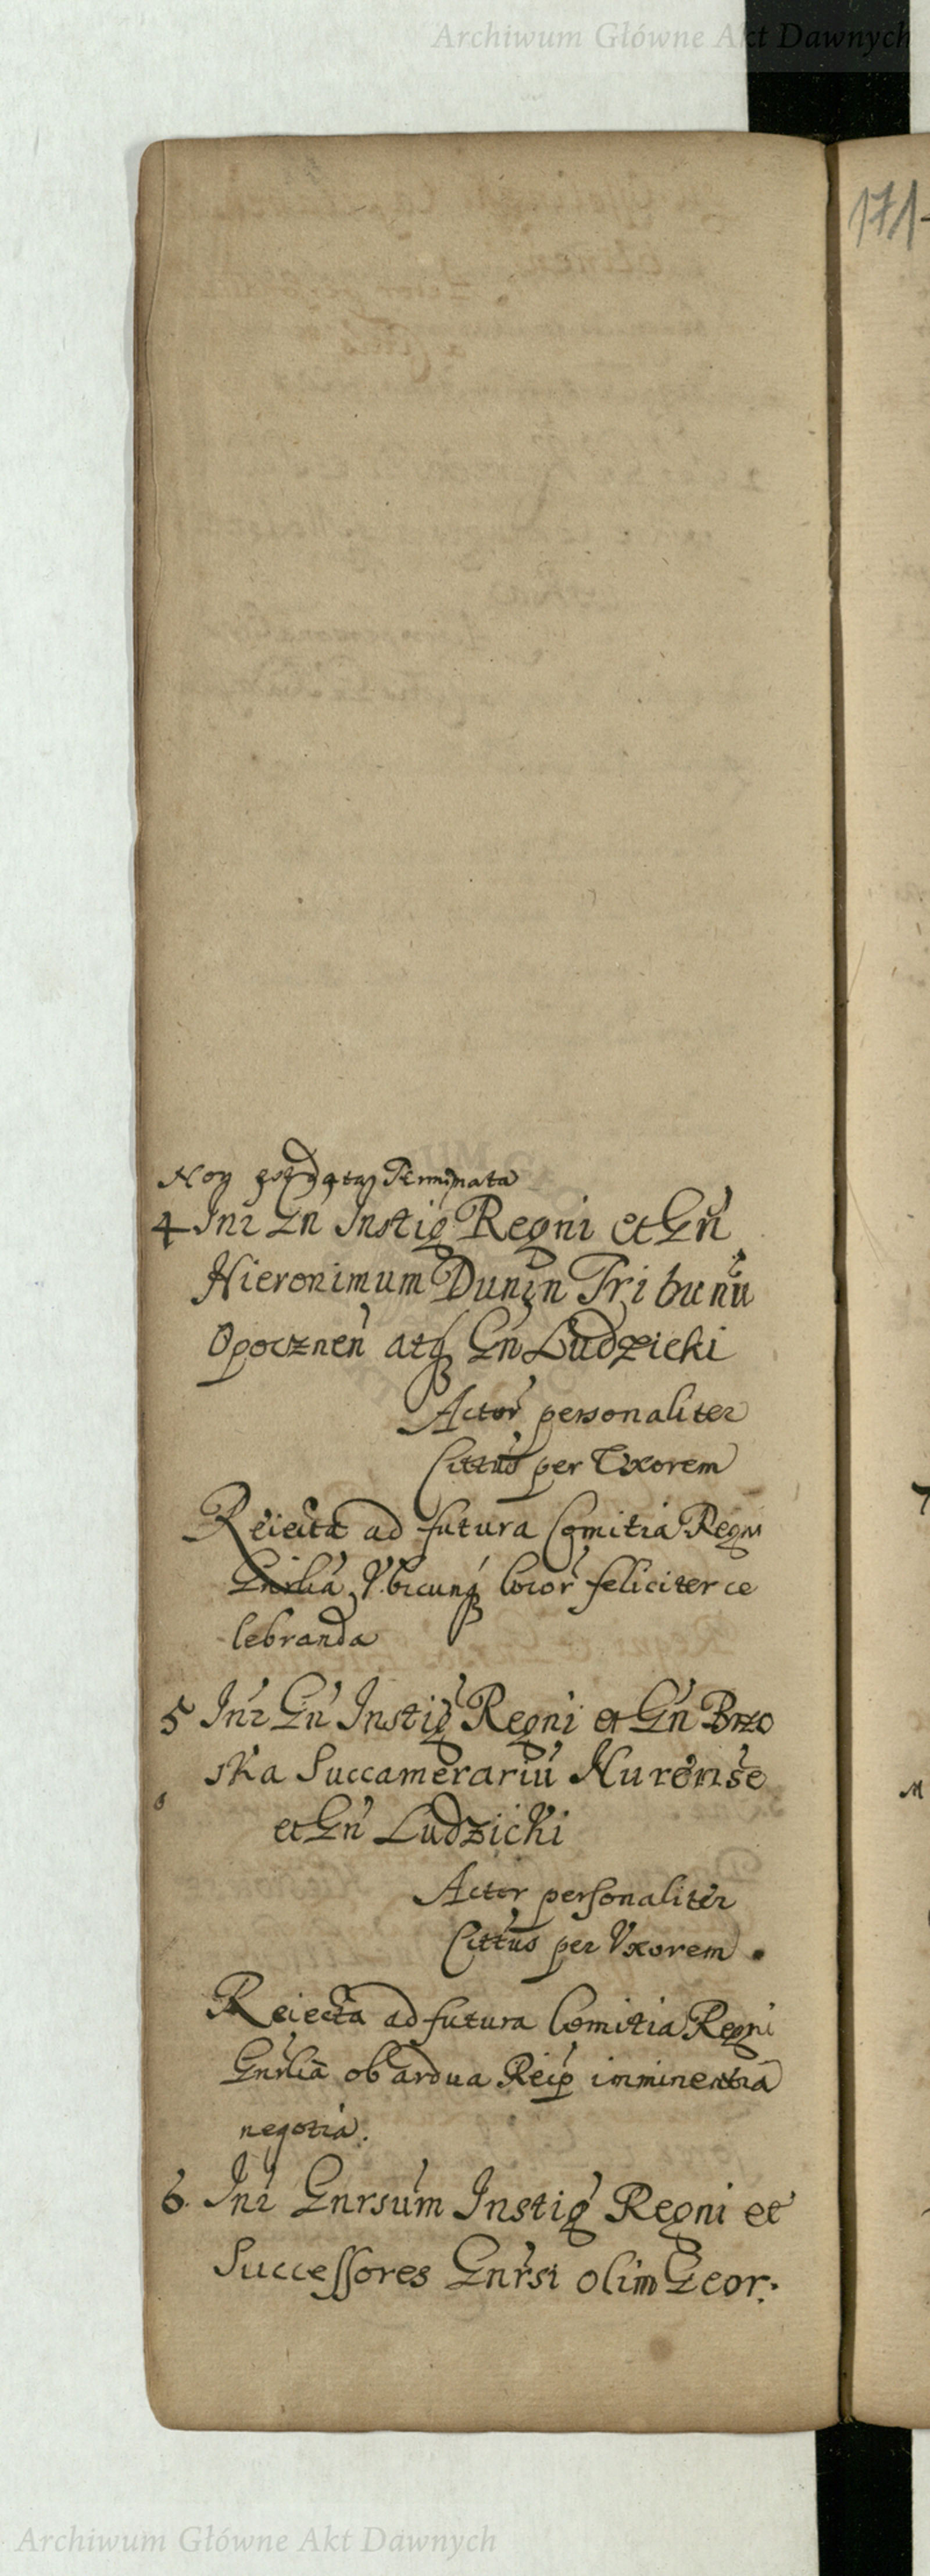 Archiwum Główne Akt Dawnych
171
Terminata
4 Inr Gn Instig Regni et Gn
Hieronimum Dunin Tribunu
Opocznen atq Gn Ludzicki
Actor personaliter
Cittus per Uxorem
Reiecta ad futura Comitia Regni
Gnrlia Ubicunq locor feliciter ce
lebranda
5 Inr Gn Instig Regni et Gn Brzo
ska Succamerariu Nurense
et Gn Ludzicki
Actor personaliter
Cittus per Uxorem.
Reiecta ad futura Comitia Regni
Gnrlia ob ardua Reip imminentia
negotia.
6. Inr Gnrsum Instig Regni et
Successores Gnrsi olim Geor:
Archiwum Główne Akt Dawnych